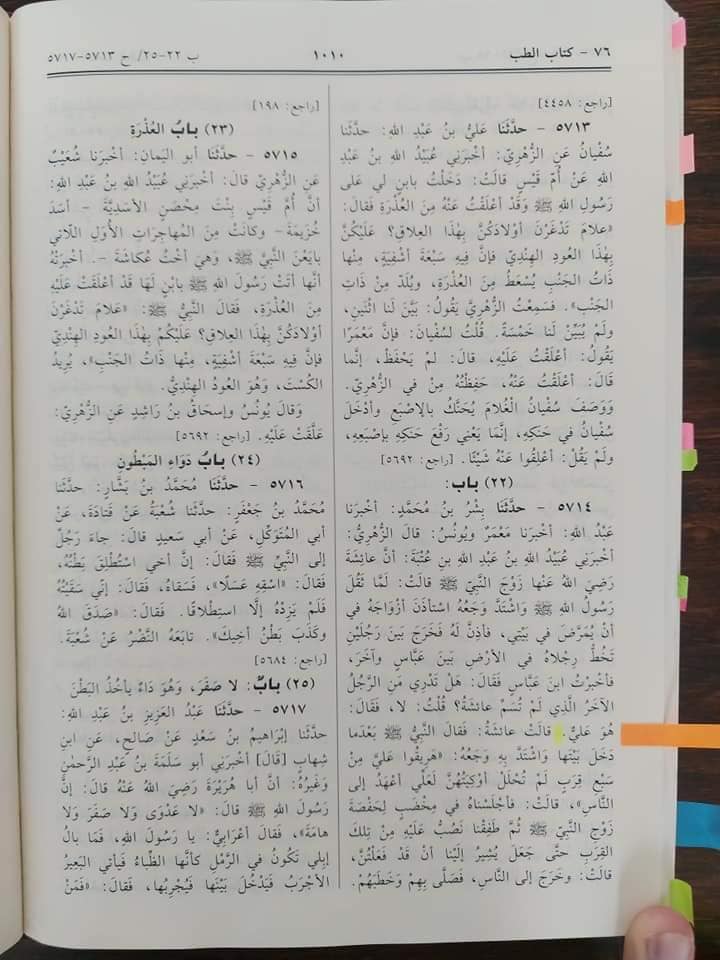 ٧٦ - كتاب الطب
١٠١٠
ب ٢٢-٢٥/ ح ٥٧١٣-٥٧١٧
[راجع: ٤٤٥٨]
٥٧١٣ - حدَّثَنَا عَليُّ بنُ عَبْدِ اللهِ: حدَّثنا
سُفْيانُ عَنِ الزُّهْرِيِّ: أخْبرَنِي عُبَيْدُ اللهِ بنُ عَبْدِ
اللهِ عَنْ أُمِّ قَيْسٍ قالَتْ: دَخَلْتُ بابنٍ لي عَلى
رَسُولِ اللهِ ﷺ وَقَدْ أعْلَقْتُ عَنْهُ مِنَ العُذْرَةِ فَقالَ:
«عَلامَ تَدْغَرْنَ أوْلادَكُنَّ بِهٰذا العِلاقِ؟ عَلَيْكُنَّ
بِهٰذا العودِ الهِنْدِيِّ فإنَّ فِيهِ سَبْعَةَ أشْفِيَةٍ، مِنْها
ذَاتُ الجَنْبِ يُسْعَطُ مِنَ العُذْرَةِ، ويُلَدُّ مِنْ ذَاتِ
الجَنْبِ». فَسَمِعْتُ الزُّهْرِيَّ يَقُولُ: بَيَّنَ لَنا اثْنَينِ،
ولَمْ يُبَيِّنْ لَنا خَمْسَةً. قُلْتُ لسُفْيانَ: فإنَّ مَعْمَرًا
يَقُولُ: أعْلَقْتُ عَلَيْهِ، قالَ: لمْ يَحْفَظْ، إنَّما
قَالَ: أعْلَقْتُ عَنْهُ، حَفِظْتُهُ مِنْ في الزُّهْرِيِّ.
وَوَصَفَ سُفْيانُ الْغُلامَ يُحَنَّكُ بالإصْبَعِ وأدْخَلَ
سُفْيانُ في حَنَكِهِ، إنَّما يَعْني رَفْعَ حَنَكِهِ بإصْبِعِهِ،
ولَمْ يَقُلْ: أعْلِقُوا عَنْهُ شَيْئًا. [راجع: ٥٦٩٢]
(٢٢) باب:
٥٧١٤ - حدَّثَنَا بِشْرُ بنُ مُحَمَّدٍ: أخْبرَنا
عَبْدُ اللهِ: أخْبرَنا مَعْمَرٌ ويُونُسُ: قالَ الزُّهْرِيُّ:
أخْبرَنِي عُبَيْدُ اللهِ بنُ عَبْدِ اللهِ بنِ عُتْبَةَ: أنَّ عائِشَةَ
رَضِيَ اللهُ عَنْها زَوْجَ النَّبِيِّ ﷺ قالَتْ: لَمَّا ثَقُلَ
رَسُولُ اللهِ ﷺ وَاشْتَدَّ وَجَعُهُ اسْتَأذَنَ أزْوَاجَهُ في
أنْ يُمَرَّضَ في بَيْتِي، فأذِنَّ لَهُ فَخَرَجَ بَينَ رَجُلَيْنِ
تَخُطُّ رِجْلاهُ في الأرْضِ بَينَ عَبَّاسٍ وآخَرَ،
فأخْبرْتُ ابنَ عَبَّاسٍ فَقالَ: هَلْ تَدْرِي مَنِ الرَّجُلُ
الآخَرُ الَّذِي لَمْ تُسَمِّ عائشَةُ؟ قُلْتُ: لا، فَقالَ:
هُوَ عَليٌّ. قالَتْ عائشَةُ: فَقالَ النَّبِيُّ ﷺ بَعْدَما
دَخَلَ بَيْتَها وَاشْتَدَّ بِهِ وَجَعُهُ: «هَرِيقُوا عَليَّ مِنْ
سَبْعِ قِرَبٍ لَمْ تُحْلَلْ أوْكِيَتُهُنَّ لَعَلِّي أعْهَدُ إلى
النَّاسِ»، قالَتْ: فأجْلَسْناهُ في مِخْضَبٍ لِحَفْصَةَ
زَوْجِ النَّبِيِّ ﷺ ثُمَّ طَفِقْنا نَصُبُّ عَلَيْهِ مِنْ تِلكَ
القِرَبِ حتَّى جَعَلَ يُشِيرُ إلَيْنا أنْ قَدْ فَعَلْتُنَّ،
قالَتْ: وخَرَجَ إلى النَّاسِ، فَصَلَّى بِهِمْ وَخَطَبَهُمْ.
[راجع: ١٩٨]
(٢٣) بابُ العُذْرَةِ
٥٧١٥ - حدَّثَنَا أبو اليَمانِ: أخْبرَنا شُعَيْبٌ
عَنِ الزُّهْرِيِّ قالَ: أخْبرَنِي عُبَيْدُ اللهِ بنُ عَبْدِ اللهِ:
أنَّ أُمَّ قَيْسٍ بِنْتَ مِحْصَنٍ الأسَدِيَّةَ - أسَدَ
خُزَيمَةَ - وكانَتْ مِنَ المُهاجِرَاتِ الأُوَلِ اللَّاتي
بايَعْنَ النَّبِيَّ ﷺ، وَهِيَ أُخْتُ عُكَاشَةَ -. أخْبرَتْهُ
أنَّها أتَتْ رَسُولَ اللهِ ﷺ بابْنٍ لَهَا قَدْ أعْلَقَتْ عَلَيْهِ
مِنَ العُذْرَةِ، فَقالَ النَّبِيُّ ﷺ: «عَلامَ تَدْغَرْنَ
أوْلادَكُنَّ بِهٰذا العِلاقِ؟ عَلَيْكُمْ بِهٰذا العودِ الهِنْدِيِّ
فإنَّ فِيهِ سَبْعَةَ أشْفِيَةٍ، مِنْها ذَاتُ الجَنْبِ»، يُرِيدُ
الكُسْتَ، وَهُوَ العُودُ الهِنْدِيُّ.
وَقالَ يُونُسُ وإسحَاقُ بنُ رَاشِدٍ عَنِ الزُّهْرِيِّ:
عَلَّقَتْ عَلَيْهِ. [راجع: ٥٦٩٢]
(٢٤) بابُ دَوَاءِ المَبْطُونِ
٥٧١٦ - حدَّثَنَا مُحَمَّدُ بنُ بَشَّارٍ: حدَّثنا
مُحَمَّدُ بنُ جَعْفَرٍ: حدَّثَنا شُعْبَةُ عَنْ قَتادَةَ، عَنْ
أبي المُتَوَكِّلِ، عَنْ أبي سَعِيدٍ قالَ: جاءَ رَجُلٌ
إلى النَّبِيِّ ﷺ فَقالَ: إنَّ أخي اسْتُطْلِقَ بَطْنُهُ،
فَقالَ: «اسْقِهِ عَسَلًا»، فَسَقاهُ، فَقالَ: إنِّي سَقَيْتُهُ
فَلَمْ يَزِدْهُ إلَّا استِطْلاقًا. فَقالَ: «صَدَقَ اللهُ
وَكَذَبَ بَطْنُ أخِيكَ». تابَعَهُ النَّضْرُ عَنْ شُعْبَةَ.
[راجع: ٥٦٨٤]
(٢٥) بابٌ: لا صَفَرَ، وَهُوَ دَاءٌ يأخُذُ البَطْنَ
٥٧١٧ - حدَّثَنَا عَبْدُ العَزِيزِ بنُ عَبْدِ اللهِ:
حدَّثنا إبْرَاهِيمُ بنُ سَعْدٍ عَنْ صَالحٍ، عَنِ ابنِ
شِهابٍ [قالَ] أخْبرَنِي أبو سَلَمَةَ بنُ عَبْدِ الرَّحمٰنِ
وَغَيرُهُ: أنَّ أبا هُرَيْرَةَ رَضِيَ اللهُ عَنْهُ قالَ: إنَّ
رَسُولَ اللهِ ﷺ قالَ: «لا عَدْوَى وَلا صَفَرَ وَلا
هامَةَ»، فَقالَ أعْرَابِيٌّ: يا رَسُولَ اللهِ، فَمَا بالُ
إبِلي تَكُونُ في الرَّمْلِ كأنَّها الظِّباءُ فَيَأتي البَعِيرُ
الأجْرَبُ فَيَدْخُلُ بَيْنَها فَيُجْرِبُها، فَقالَ: «فَمَنْ